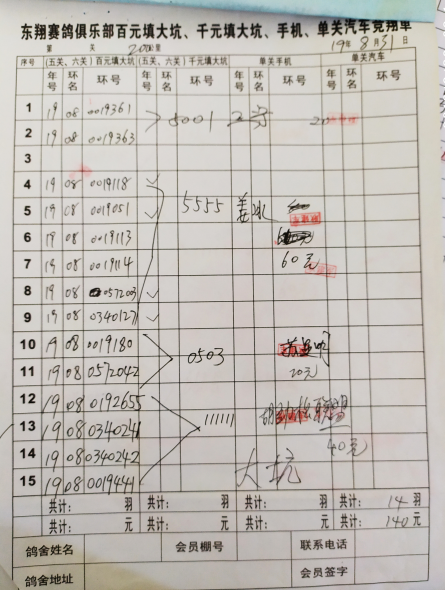 东翔赛鸽俱乐部百元填大坑、千元填大坑、手机、单关汽车竞翔单
第 关 200公里 19年8月31日
序号 (五关、六关)百元填大坑 (五关、六关)千元填大坑 单关手机 单关汽车
年号 环名 环号 年号 环名 环号 年号 环名 环号 年号 环名 环号
1 19 08 0019361
5001
2 19 08 0019363
3
4 19 08 0019118
5555 姜
5 19 08 0019051
6 19 08 0019113
7 19 08 0019114 60元
8 19 08 057203
9 19 08 0340127
10 19 08 0019180
0503
11 19 08 0572042 20元
12 19 08 0192655
111111 联盟
13 19 08 0340241
40元
14 19 08 0340242
大坑
15 19 08 0019441
共计: 羽 共计: 羽 共计: 羽 共计: 14羽
共计: 元 共计: 元 共计: 元 共计: 140元
鸽舍姓名 会员棚号 联系电话
鸽舍地址 会员签字